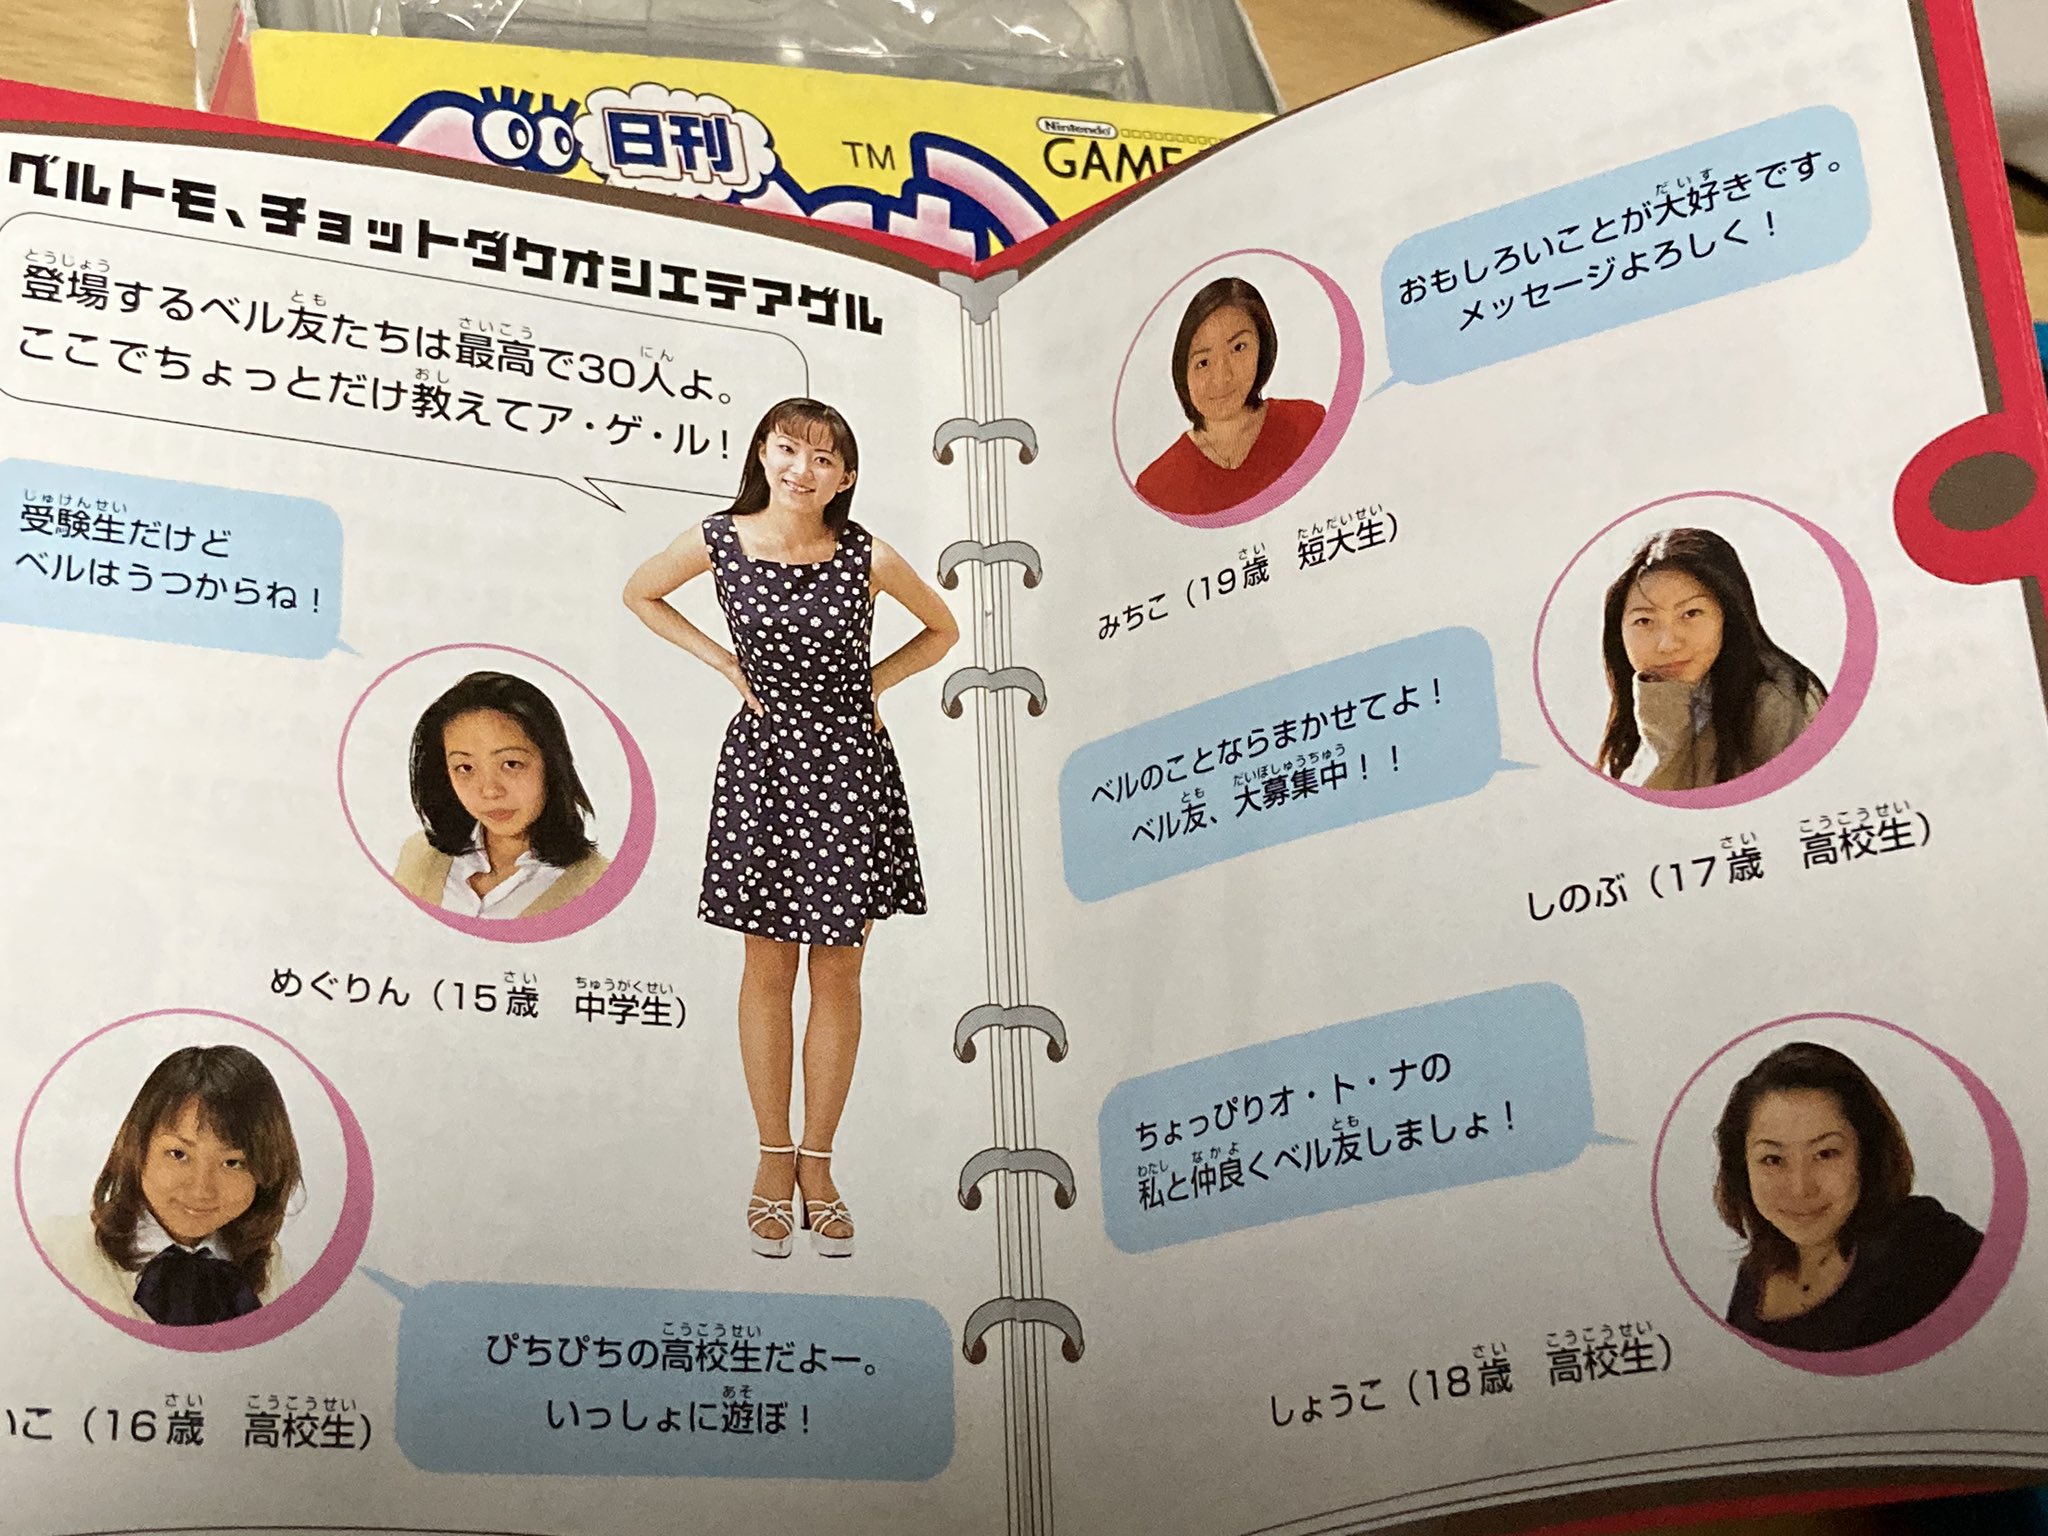 日刊
TM
Nintendo
GAME
ベルトモ、チョットダケオシエテアゲル
登場するベル友たちは最高で30人よ。
ここでちょっとだけ教えてア・ゲ・ル！
受験生だけど
ベルはうつからね！
めぐりん（15歳　中学生）
こ（16歳　高校生）
ぴちぴちの高校生だよー。
いっしょに遊ぼ！
おもしろいことが大好きです。
メッセージよろしく！
みちこ（19歳　短大生）
ベルのことならまかせてよ！
ベル友、大募集中！！
しのぶ（17歳　高校生）
ちょっぴりオ・ト・ナの
私と仲良くベル友しましょ！
しょうこ（18歳　高校生）